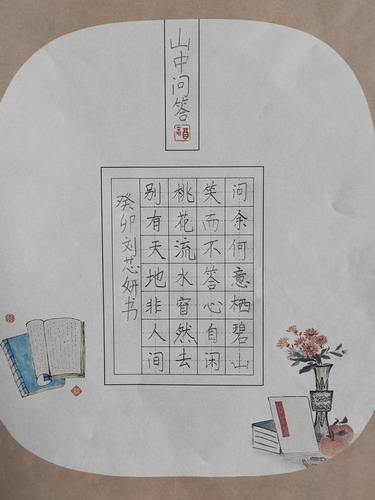 山中问答
问余何意栖碧山
笑而不答心自闲
桃花流水窅然去
别有天地非人间
癸卯刘芯妍书